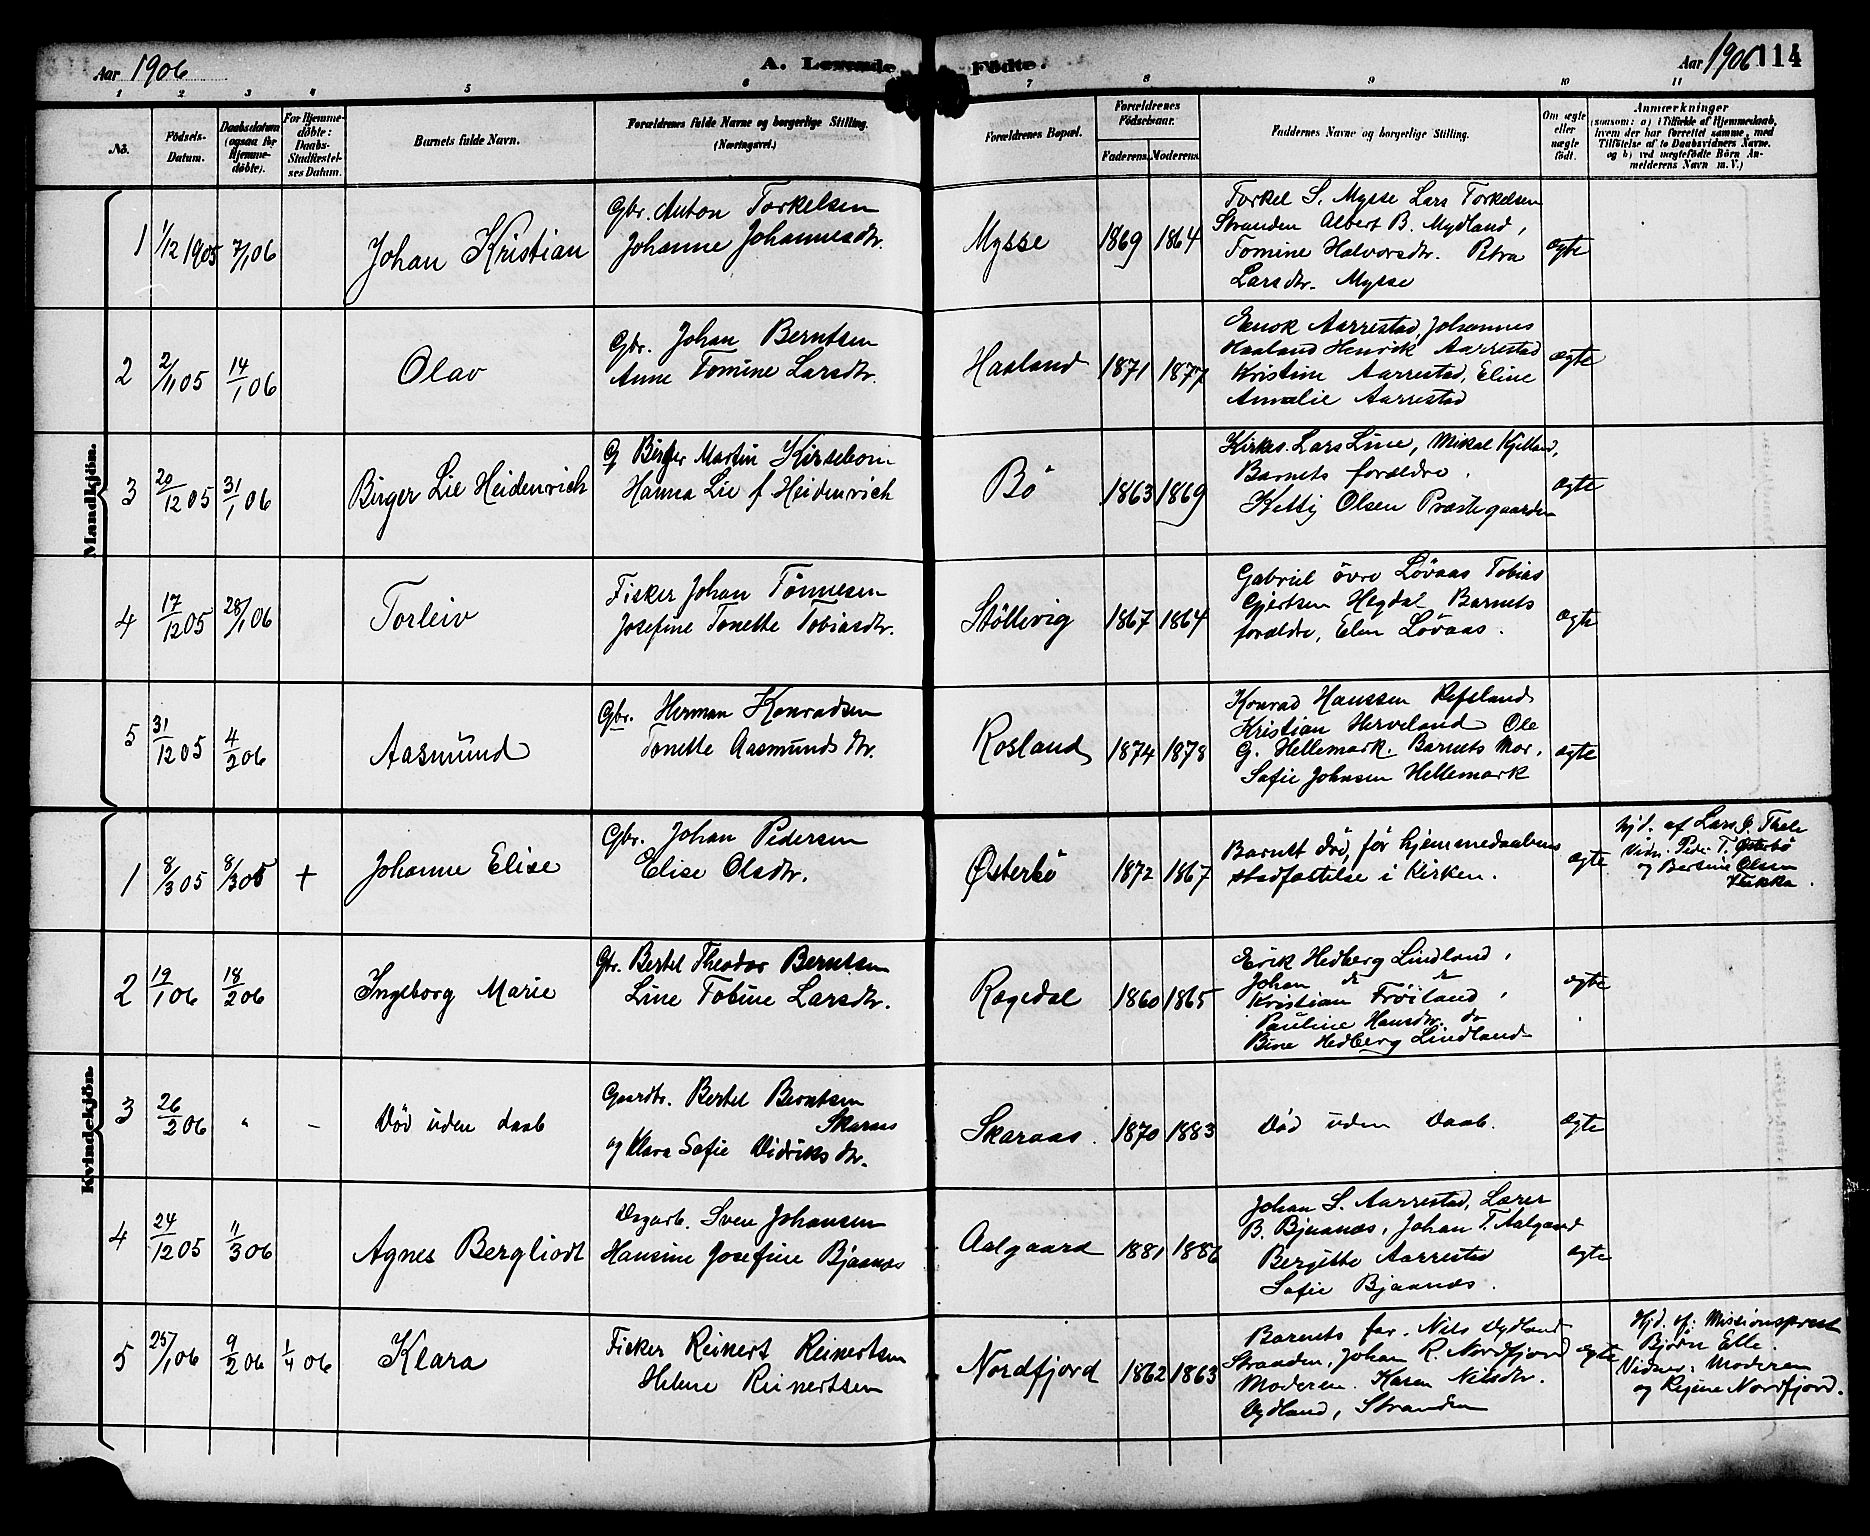 Aar 1906
A. Levende
Fødte.
Aar 1906
114
1 2 3 4 5 6 7 8 9 10 11
No.
Födsels-
Datum.
Daabsdatum
(ogsaa for
Hjemme-
døbte).
For Hjemme-
døbte:
Daabs-
Stadfæstel-
ses Datum.
Barnets fulde Navn.
Forældrenes fulde Navne og borgerlige Stilling.
(Næringsvei.)
Forældrenes Bopæl.
Forældrenes
Födselsaar.
Faderens. Moderens.
Faddernes Navne og borgerlige Stilling.
Om ægte
eller
uægte
født.
Anmærkninger
saasom: a) i Tilfælde af Hjemmedaab,
hvem der har forrettet samme, med
Tilføielse af to Daabsvidners Navne.
og b) ved uægtefødte Börn An-
melderens Navn m. V.)
Mandkjön.
1 1/12 1905 7/1 06 Johan Kristian
Gbr. Anton Torkelsen
Johanne Johannesdtr.
Mysse 1869 1864
Torkel S. Mysse Lars Torkelsen
Stranden Albert B. Mydland,
Tomine Halvorsdtr. Petra
Larsdtr. Mysse
ægte
2 2/11 05 14/1 06 Olav
Gbr. Johan Berntsen
Anne Tomine Larsdtr.
Haaland 1871 1877
Enok Aarrestad, Johannes
Haaland Henrik Aarrestad
Kristine Aarrestad, Eline
Amalie Aarrestad
ægte
3 20/12 05 31/1 06 Birger Lie Heidenrich
G Birger Martin Kirsebom
Hanna Lie f Heidenrich
Bö 1863 1869
Kirkes. Lars Line, Mikal Kjelland,
Barnets forældre.
Ketty Olsen Præstegaarden
ægte
4 17/12 05 28/1 06 Torleiv
Fisker Johan Tönnesen
Josefine Tonette Tobiasdtr.
Stöllevig 1867 1864
Gabriel övre Lövaas Tobias
Gjertsen Hegdal Barnets
forældre, Elen Lövaas.
ægte
5 31/12 05 4/2 06 Aasmund
Gbr. Herman Konradsen
Tonette Aasmundsdtr.
Rosland 1874 1878
Konrad Hanssen Refsland
Kristian Herveland Ole
G. Hellemark. Barnets Mor,
Sofie Johnsen Hellemark
ægte
Kvindekjön.
1 8/3 05 8/3 05 + Johanne Elise
Gbr. Johan Pedersen
Elise Olsdtr.
Østerbö 1872 1867
Barnet död, før hjemmedaabens
stadfæstelse i Kirken.
ægte
Hjd. af Lars G. Thele
Vidn. Peder T. Østerbö
og Bertine Olsen
2 19/1 06 18/2 06 Ingeborg Marie
Gbr. Bertel Theodor Berntsen
Line Tobine Larsdtr.
Ragedal 1860 1865
Erik Hedberg Lindland,
Johan do do
Kristian Fröiland,
Pauline Hansdtr. do
Bine Hedberg Lindland
ægte
3 26/2 06 " - Död uden daab
Gaardbr. Bertel Berntsen
Skaraas
og Klara Sofie Didriksdtr.
Skaraas. 1870 1883
Död uden Daab.
ægte
4 24/12 05 11/3 06 Agnes Bergliodt
Dagarb. Sven Johansen
Hansine Josefine Bjaanes
Aalgaard 1881 1886
Johan S. Aarrestad, Lærer
B. Bjaanæs, Johan T. Aalgaard
Bergitte Aarrestad
Sofie Bjaanæs.
ægte
5 25/1 06 9/2 06 1/4 06 Klara
Fisker Reinert Reinertsen
Helene Reinertsen
Nordfjord 1862 1863
Barnets far. Nils Dydland
Stranden, Johan R. Nordfjord
Moderen. Karen Nilsdtr.
Dydland, Stranden
ægte
Hjd. af Missionsprest
Bjørn Elle.
Vidner: Moderen
og Regine Nordfjord.